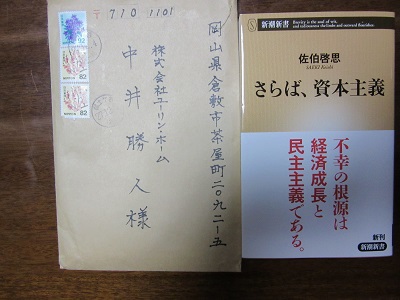 〒710 1101
岡山県倉敷市茶屋町二〇九二ー五
株式会社ユーリン・ホーム
中井勝人様
82
82
新潮新書
佐伯啓思
SAEKI Keishi
さらば、資本主義
不幸の根源は
経済成長と
民主主義である。
新刊
新潮新書